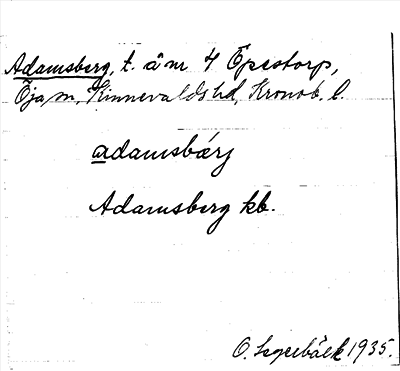 Adamsberg, t. å nr 4 Öpestorp,
Öja sn, Kinnevalds hd, Kronob. l.
adamsbærj
Adamsberg kb.
O. 1935.